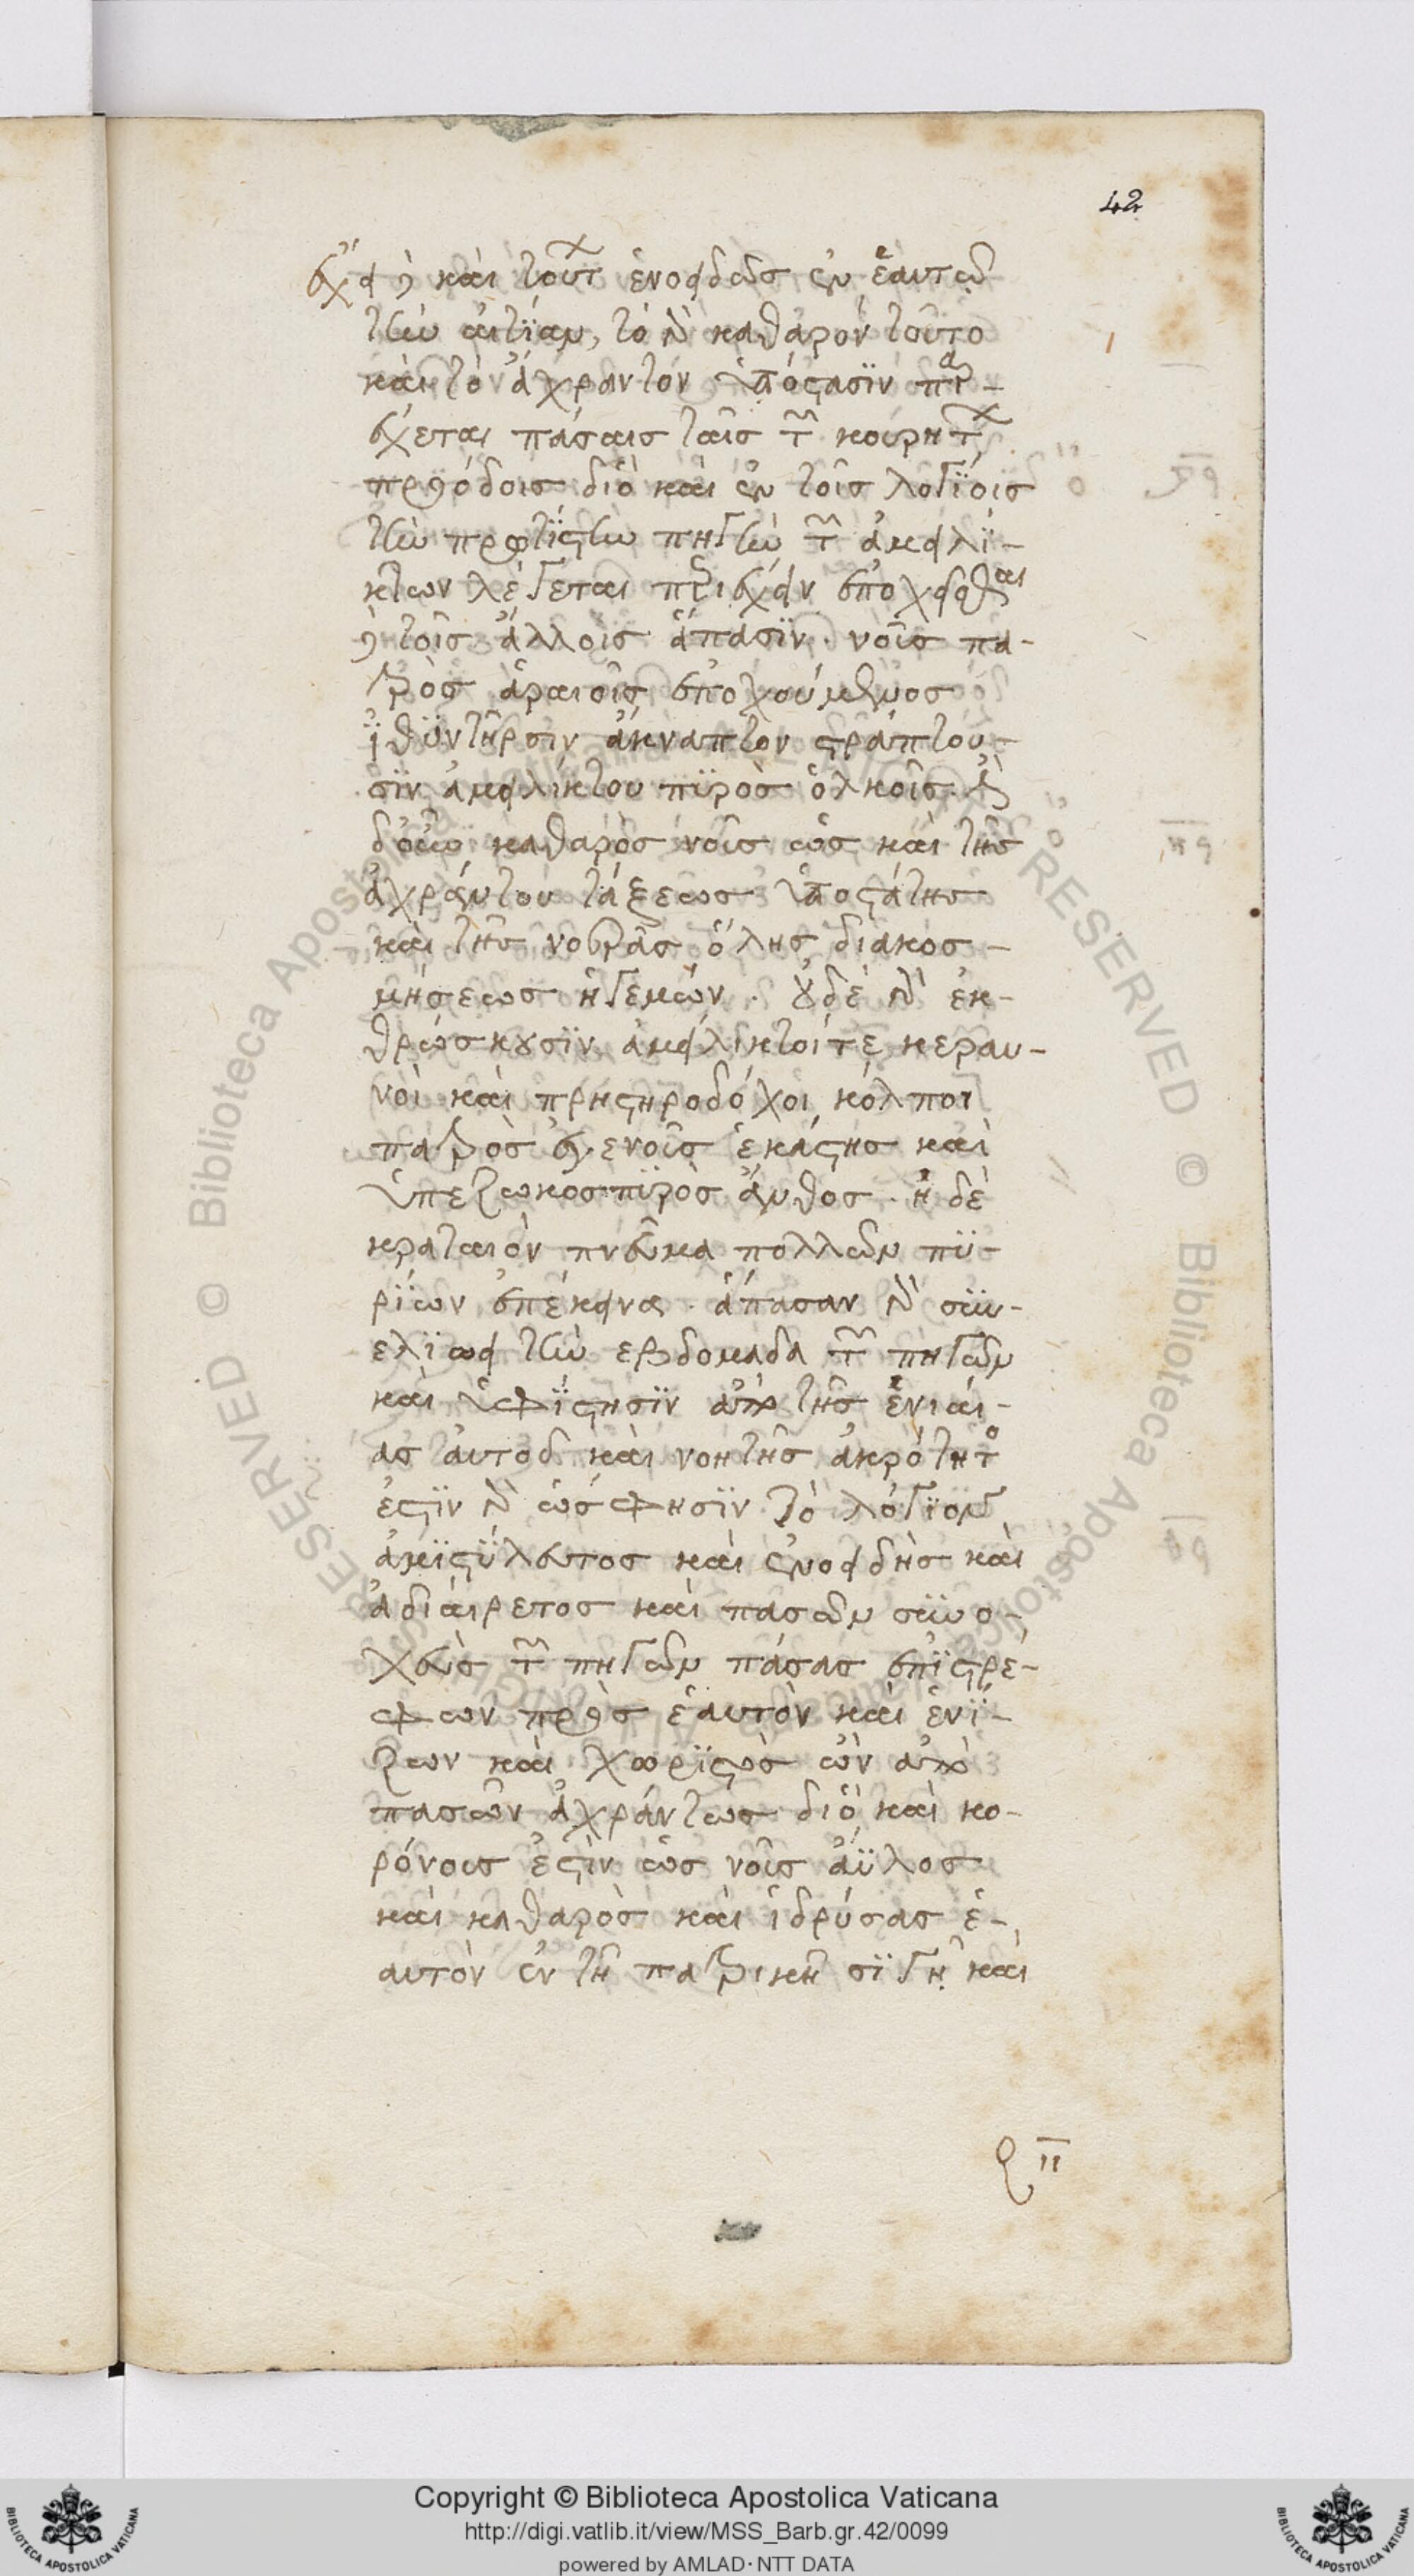 42
ἔχει γὰρ καὶ τούτων ἑνοειδῶς ἐν ἑαυτῷ
τὴν αἰτίαν, τὸ δὲ καθαρὸν τοῦτο
καὶ τὸν ἄχραντον ὑπόστασιν παρ-
έχεται πάσαις ταῖς τῶν κουρητῶν
προόδοις διὸ καὶ ἐν τοῖς λογίοις
τὴν πρωτίστην πηγὴν τῶν ἀμειλί-
κτων λέγεται περιέχειν ἐποχεῖσθαι
τοῖς ἄλλοις ἅπασιν. νοῦς πα-
τρὸς ἀραιοῖς ἐποχούμενος
ἰθυντῆρσιν ἄκναπτον στράπτου-
σιν ἀμειλίκτου πυρὸς ὁλκοῖς.
καθαρὸς νοῦς ὡς καὶ τῆς
ἀχράντου τάξεως ὑποστάτης
καὶ τῆς νοερᾶς ὅλης διακοσ-
μήσεως ἡγεμών. οὐδὲ δὲ ἐκ-
θρώσκουσιν ἀμείλικτοί τε κεραυ-
νοὶ καὶ πρηστηροδόχοι κόλποι
πατρὸς ἐγενοῦς ἑκάστης καὶ
ὑπεζωκος πυρὸς ἄνθος. ἡ δὲ
κραταιὸν πνεῦμα πολλῶν πυ-
ρίων ἐπέκεινα. ἅπασαν δὲ συν-
ελίωει τὴν ἑβδομάδα τῶν πηγῶν
καὶ ὑφίστησιν ἀπὸ τῆς ἑνιαί-
ας αὐτοῦ καὶ νοητῆς ἀκρότητος
ἐστὶν δὲ ὥς φησιν τὸ λόγιον
ἀμιστύλευτος καὶ ἑνοειδὴς καὶ
ἀδιαίρετος καὶ πασῶν συνο-
χεὺς τῶν πηγῶν πάσας ἐπιστρέ-
φων πρὸς ἑαυτὸν καὶ ἑνί-
ζων καὶ χωριστὸς ὢν ἀπὸ
πασῶν ἀχράντως διὸ καὶ κο-
ρόνους ἐστὶν ὡς νοῦς ἄϋλος
καὶ καθαρὸς καὶ ἱδρύσας ἑ-
αυτὸν ἐν τῇ πατρικῇ σιγῇ καὶ
Copyright © Biblioteca Apostolica Vaticana
http://digi.vatlib.it/view/MSS_Barb.gr.42/0099
powered by AMLAD · NTT DATA